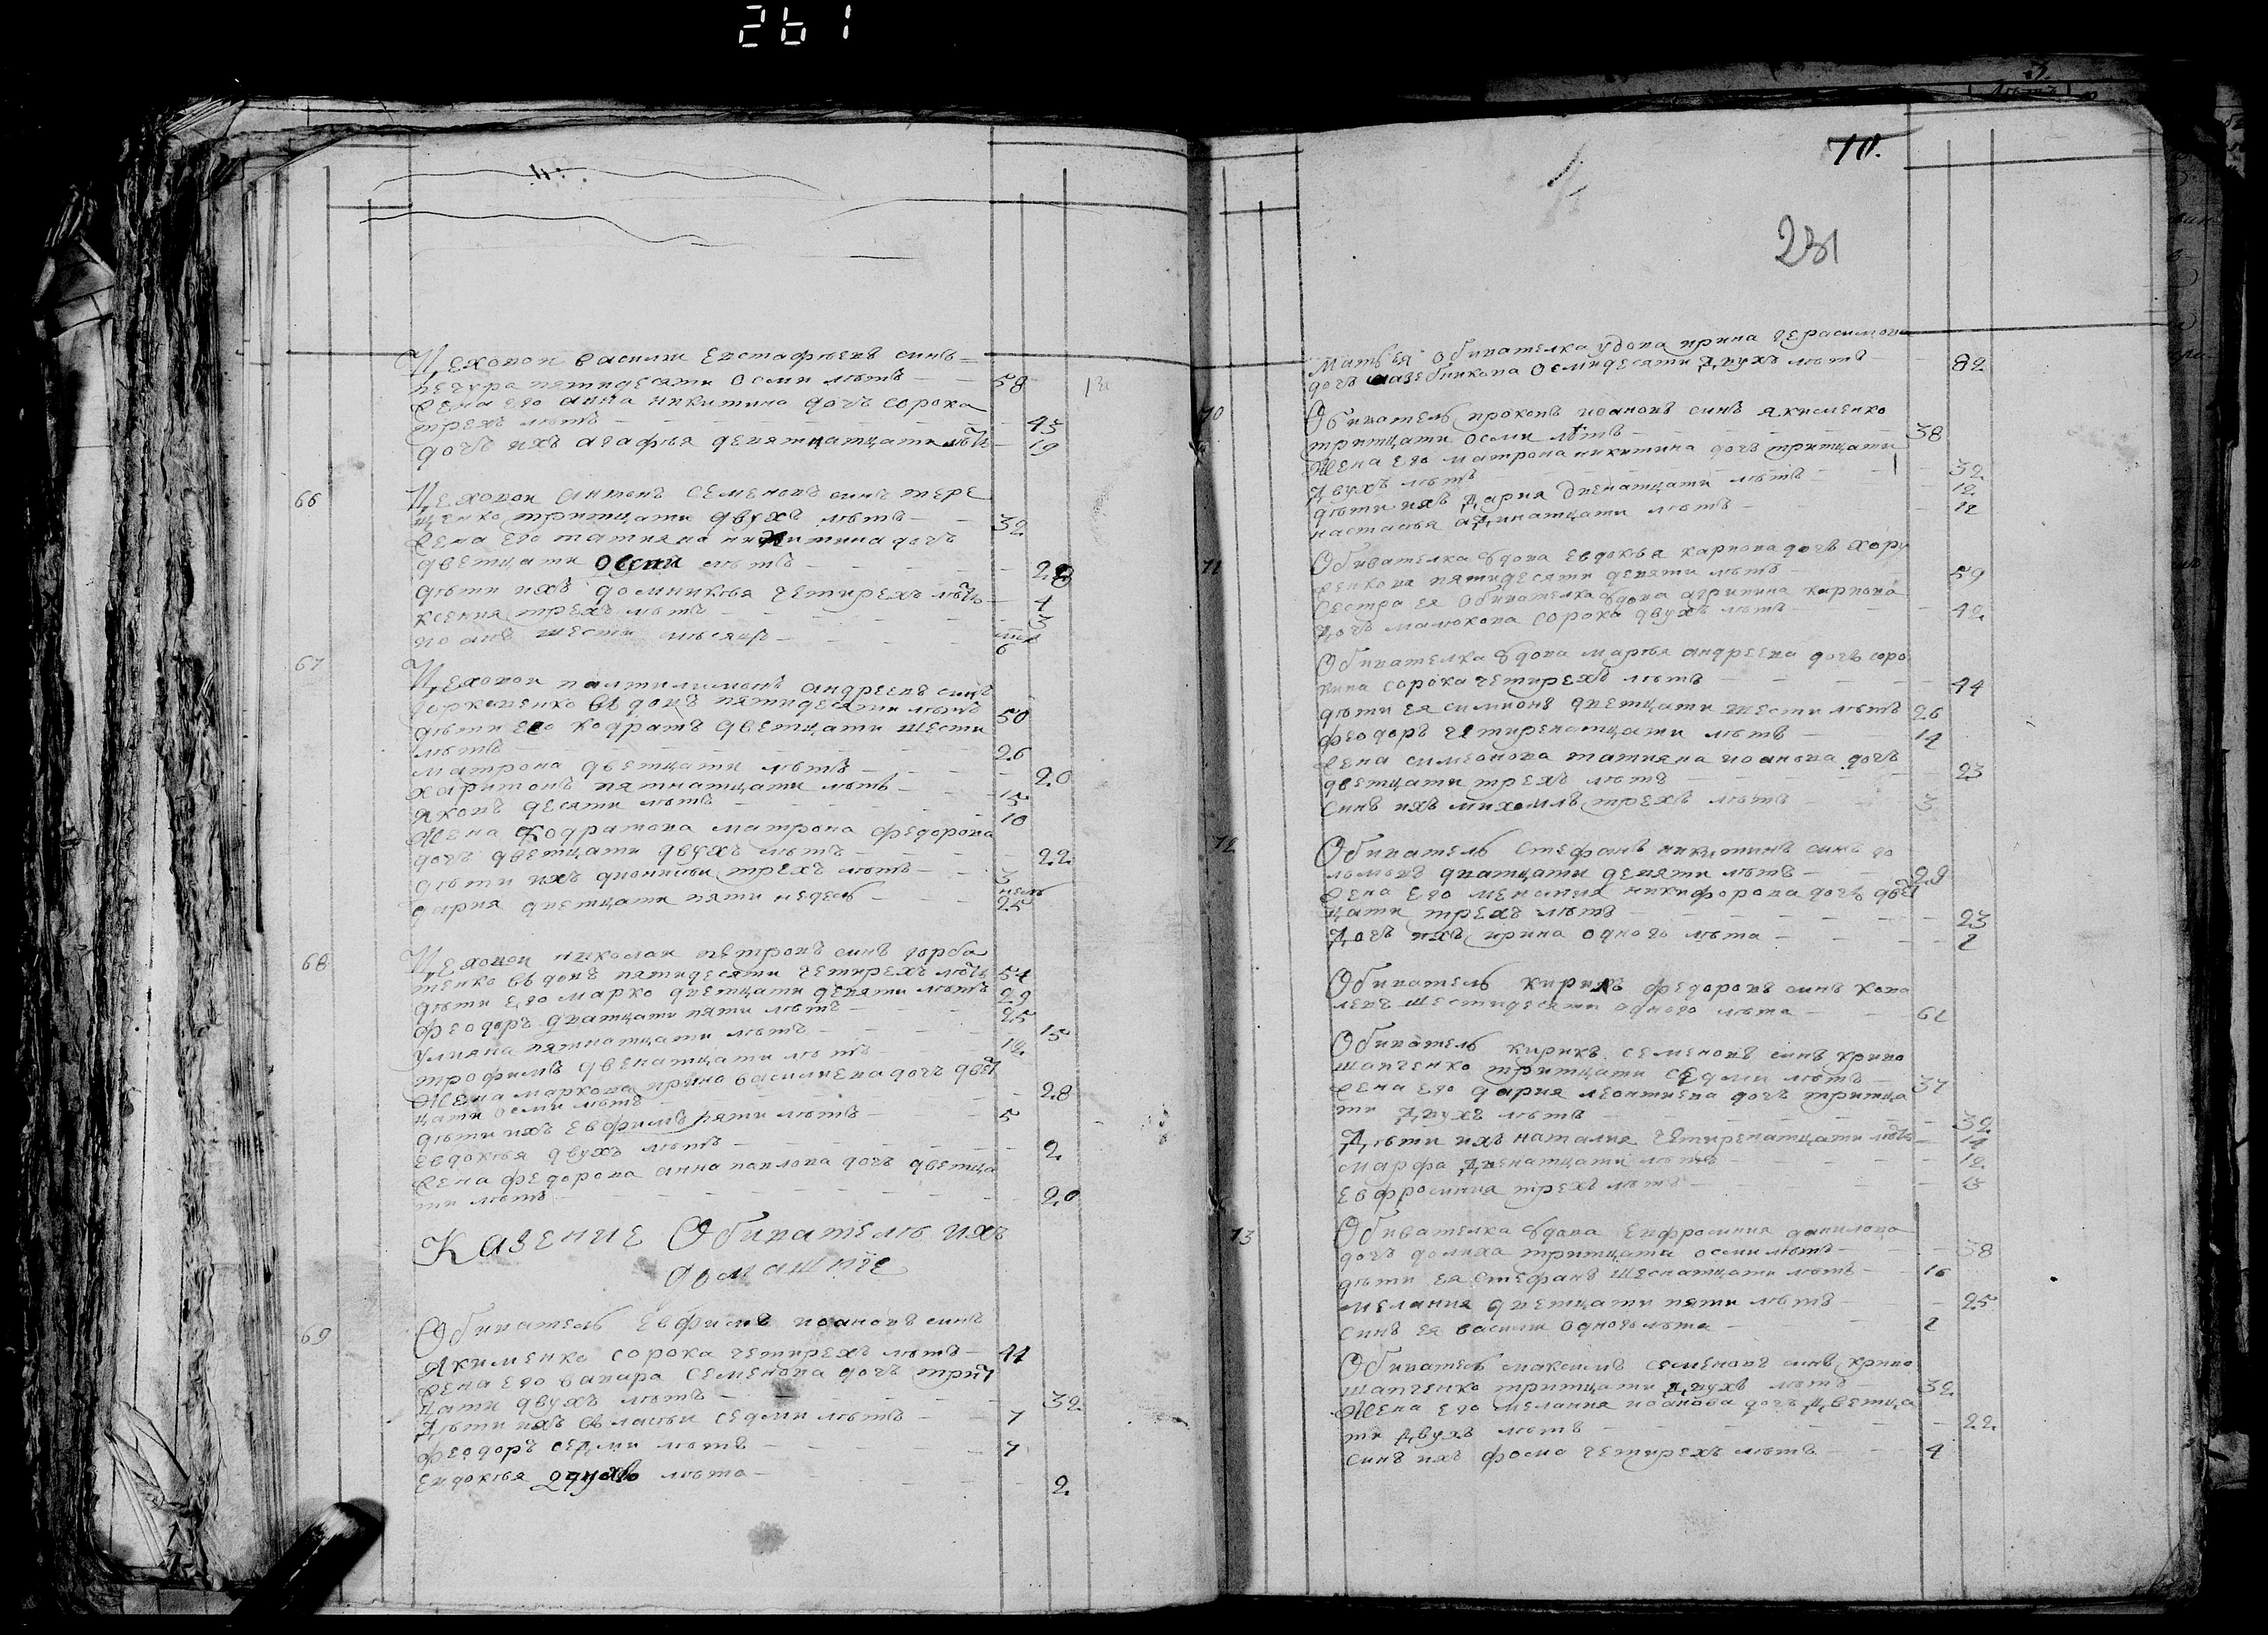 261
Цеховои василии Евстафиевъ синъ
печура пятидесяти осми лѣтъ 58
Жена его анна никитина дочъ сорока
трехъ лѣтъ 43
дочъ ихъ агафья девятнатцати лѣтъ 19
66 Цеховои антонъ семеновъ синъ тере
щенко тритцати двухъ лѣтъ 32
Жена его татияна никитина дочъ
дветцати осми лѣтъ 28
дѣти ихъ домникия четирехъ лѣтъ 4
ксения трехъ лѣтъ 3
иоанъ шести мѣсяцъ 6
67 Цеховои пантилимонъ андреевъ синъ
вдовъ пятидесяти лѣтъ 50
дѣти его кодратъ дветцати шести
лѣтъ 26
матрона дветцати лѣтъ 20
харитонъ пятнатцати лѣтъ 15
яковъ десяти лѣтъ 10
Жена кодратова матрона федорова
дочъ дветцати двухъ лѣтъ 22
дѣти ихъ дионисии трехъ лѣтъ 3
дария дветцати пяти недель 25
68 Цеховои николаи петровъ синъ горба
тенко вдовъ пятидесяти четирехъ лѣтъ 54
дѣти его марко дветцати девяти лѣтъ 29
феодоръ дватцати пяти лѣтъ 25
улияна пятнатцати лѣтъ 15
трофимъ двенатцати лѣтъ 12
Жена маркова ирина василиева дочъ двет
цати осми лѣтъ 28
дѣти ихъ евфимъ пяти лѣтъ 5
евдокия двухъ лѣтъ 2
Жена федорова анна павлова дочъ дветца
ти лѣтъ 20
Казение Обивателѣ ихъ
домашние
69 Обиватель Евфимъ иоановъ синъ
Якименко сорока четирехъ лѣтъ 44
Жена его вавара семенова дочъ трит
цати двухъ лѣтъ 32
Дѣти ихъ власии седми лѣтъ 7
феодоръ седми лѣтъ 7
евдокия лѣта 2
10.
231
Мать ея обивателка удова ирина герасимова
дочъ осмидесяти двухъ лѣтъ 82
70 Обиватель прокопъ иоановъ синъ якименко
тритцати осми лѣтъ 38
Жена его матрона никитина дочъ тритцати
двухъ лѣтъ 32
дѣти ихъ дария двенатцати лѣтъ 12
настасья адинатцати лѣтъ 11
71 Обивателка вдова евдокия карпова дочъ хору
женкова пятидесяти девяти лѣтъ 59
сестра ея обивателка вдова агрипина карпова
дочъ малюкова сорока двухъ лѣтъ 42
Обивателка вдова марфа андреева дочъ соро
кина сорока четирехъ лѣтъ 44
дѣти ея симионъ дветцати шести лѣтъ 26
феодоръ четиренатцати лѣтъ 14
Жена симеонова татияна иоанова дочъ
дветцати трехъ лѣтъ 23
синъ ихъ михаилъ трехъ лѣтъ 3
72 Обиватель стефанъ никитинъ синъ го
ломовъ дватцати девяти лѣтъ 29
Жена его мелания никифорова дочъ двет
цати трехъ лѣтъ 23
Дочъ ихъ ирина одного лѣта 1
Обиватель кирикъ федоровъ синъ кова
левъ шестидесяти одного лѣта 61
Обиватель кирикъ семеновъ синъ криво
шапченко тритцати седми лѣтъ 37
Жена его дария леонтиева дочъ тритца
ти двухъ лѣтъ 32
Дѣти ихъ наталия четиренатцати лѣтъ 14
марфа двенатцати лѣтъ 12
евфросиния трехъ лѣтъ 3
73 Обивателка вдова евфросиния данилова
дочъ тритцати осми лѣтъ 38
дѣти ея стефанъ шеснатцати лѣтъ 16
мелания дветцати пяти лѣтъ 25
синъ ея василии одного лѣта 1
Обиватель максимъ семеновъ синъ криво
шапченко тритцати двухъ лѣтъ 32
Жена его мелания иоанова дочъ дветца
ти двухъ лѣтъ 22
синъ ихъ фома четирехъ лѣтъ 4